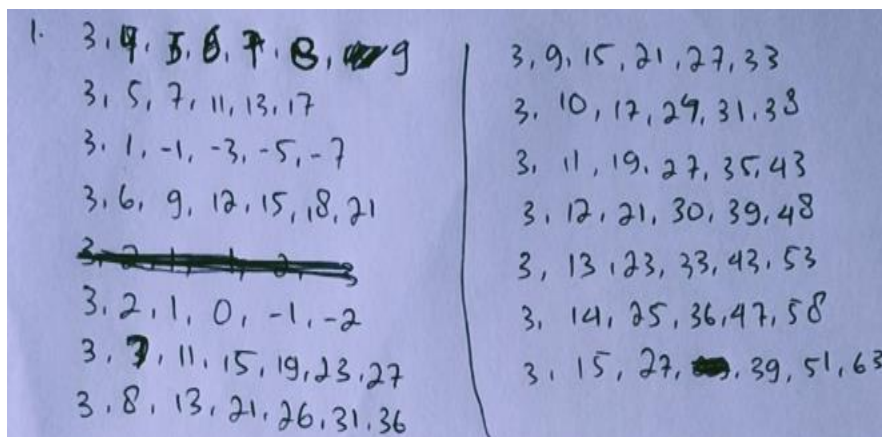 1. 3, 4, 5, 6, 7, 8, 9
3, 5, 7, 11, 13, 17
3, 1, -1, -3, -5, -7
3, 6, 9, 12, 15, 18, 21
3, 2, 1, 0, -1, -2
3, 7, 11, 15, 19, 23, 27
3, 8, 13, 21, 26, 31, 36
3, 9, 15, 21, 27, 33
3, 10, 17, 24, 31, 38
3, 11, 19, 27, 35, 43
3, 12, 21, 30, 39, 48
3, 13, 23, 33, 43, 53
3, 14, 25, 36, 47, 58
3, 15, 27, 39, 51, 63